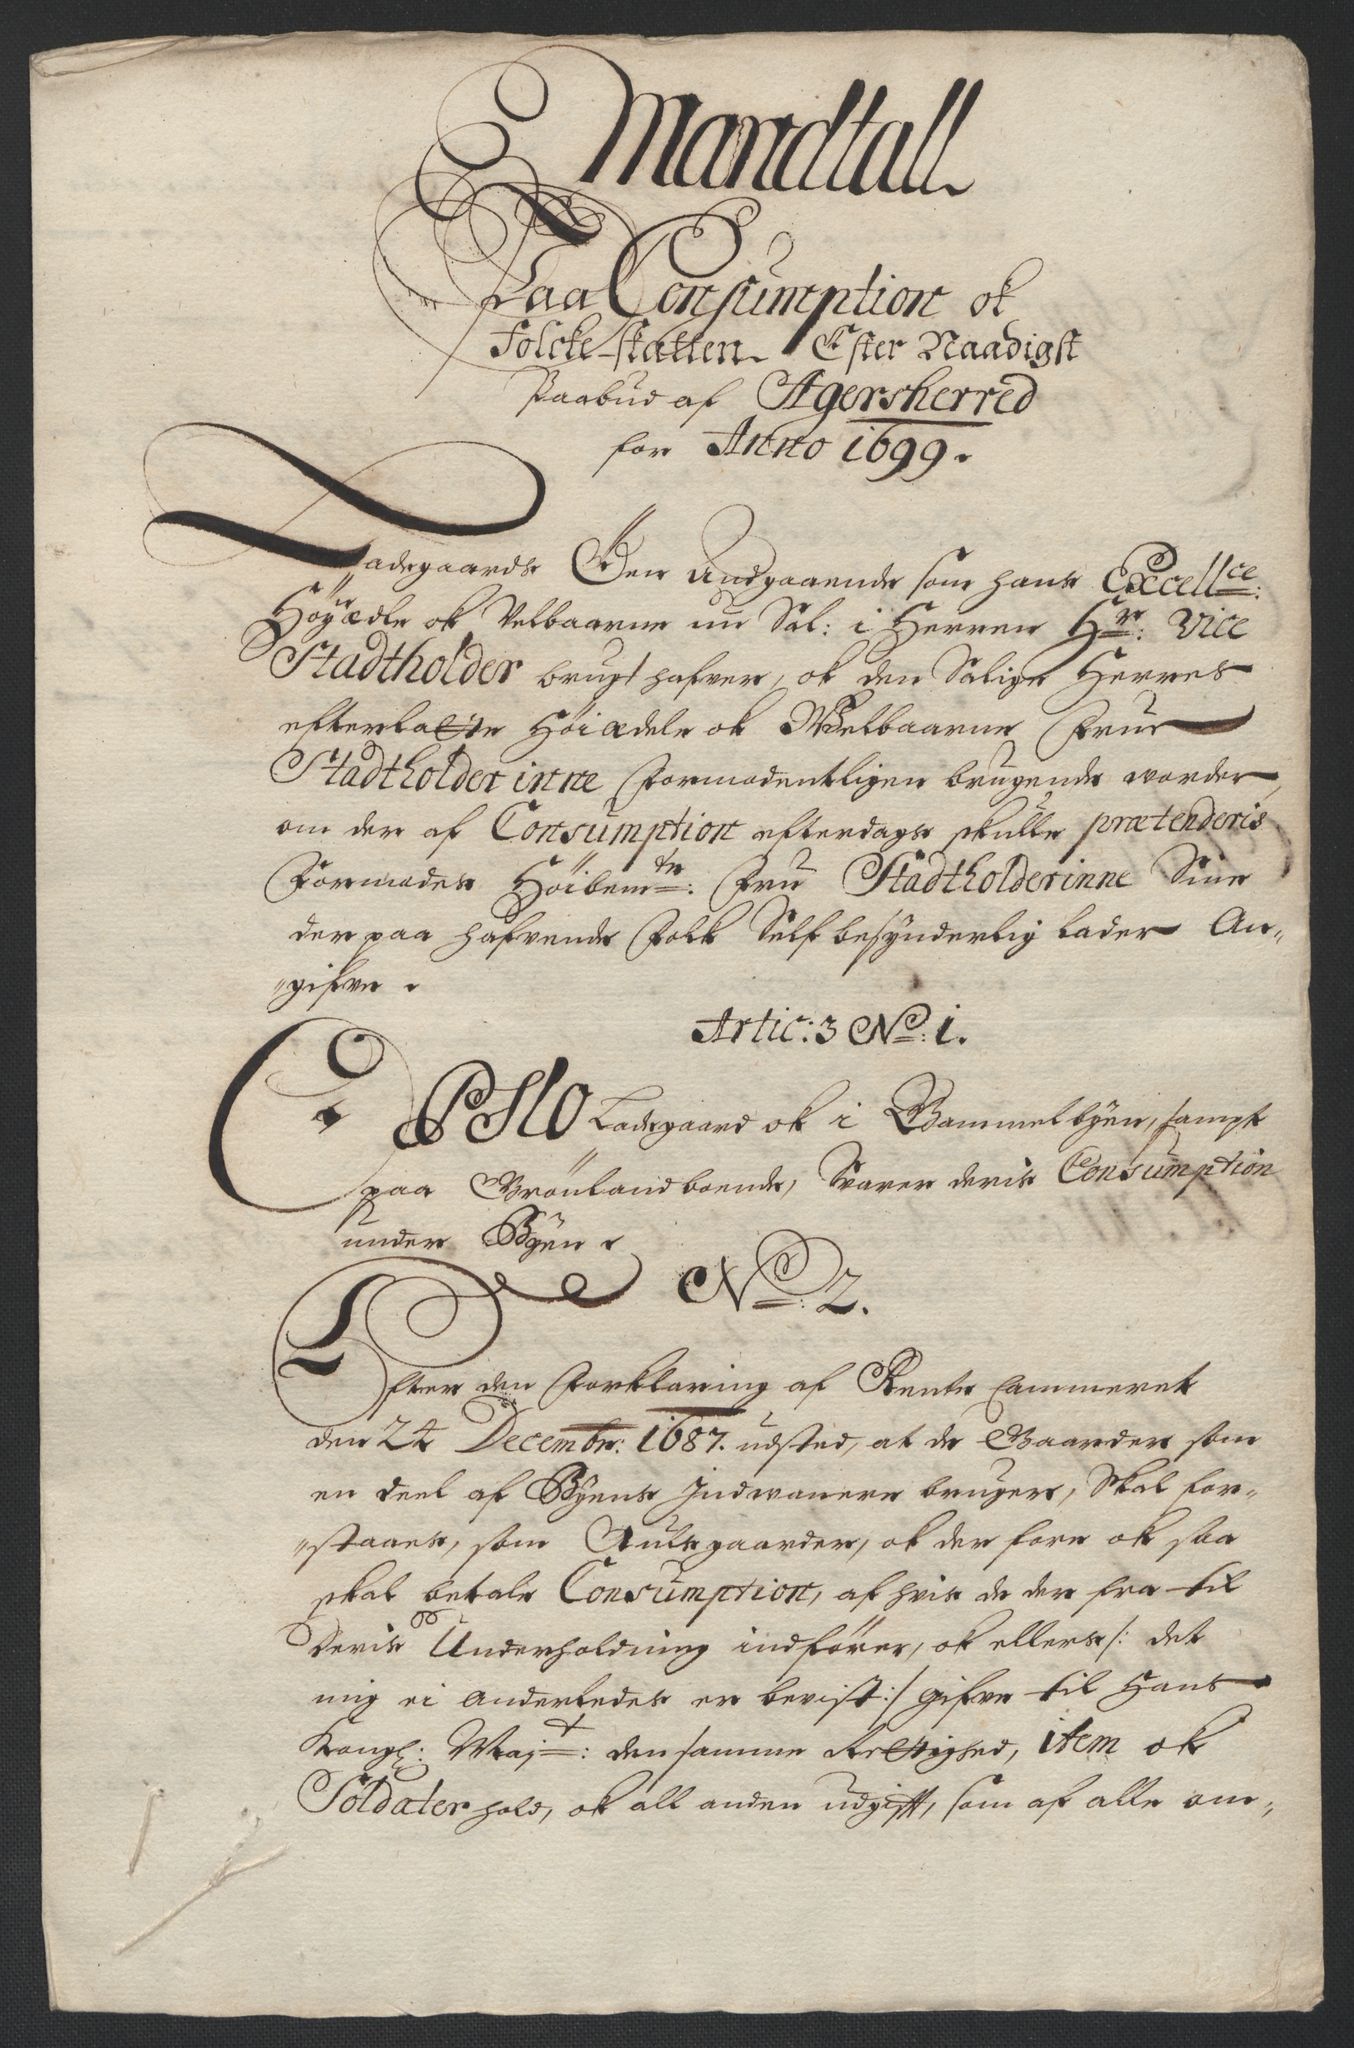 Mandtall
Paa Consumption ok
Folcke-skatten Efter Naadigst
Paabud af Agersherred
for Anno 1699.
Ladegaards Øen Andgaaende som hans Excellce:
Höyædle ok Velbaarne nu Sal: i Herren Hr: Vice
Stadtholder brugt hafver, ok den Salige Herres
efterlatte Höiædele ok Welbaarne Frue
Stadtholderinne Formodentligen brugende worder,
om der af Consumption efterdags skulle prætenderis
Formodes Höibemte: Fru Stadtholderinne Sine
der paa hafvende Folk Self besynderlig lader An-
gifve.
Artic: 3 No: 1.
Opslo Ladegaard ok i Gammelbyen, sampt
paa Grönland boende, Svarer deris Consumption
under Byen.
No: 2.
Efter den Forklaring af Rente Cammeret
den 24 Decembr: 1687. udsted, at de Gaarder som
en deel af Byens Indvanere bruger, Skal for-
staaes, som Aulsgaarder, ok der fore ok saa
skal betale Consumption, af hvis de der fra til
Deris Underholdning indförer, ok ellers /: det
mig ei anderledes er bevist :/ gifve til Hans
Kongl: Majt: den samme Rettighed, item ok
Soldater hold, ok all anden udgifft, som af alle om-